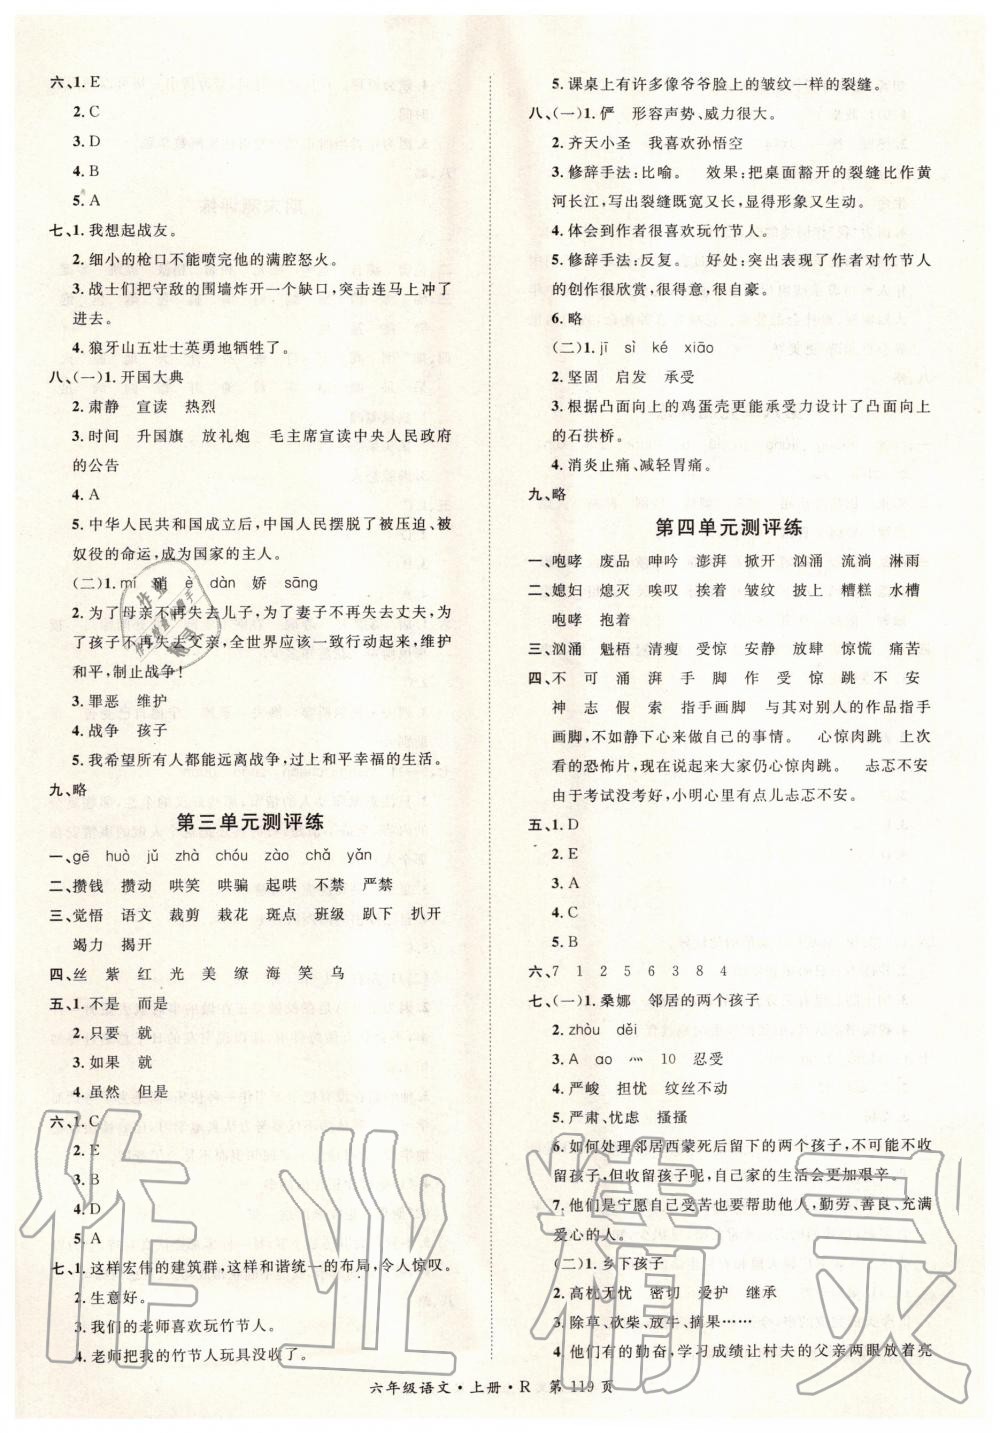 六、1. E
2. C
3. D
4. B
5. A
七、1. 我想起战友。
2. 细小的枪口不能喷完他的满腔怒火。
3. 战士们把守敌的围墙炸开一个缺口,突击连马上冲了
进去。
4. 狼牙山五壮士英勇地牺牲了。
八、(一)1. 开国大典
2. 肃静 宣读 热烈
3. 时间 升国旗 放礼炮 毛主席宣读中央人民政府
的公告
4. A
5. 中华人民共和国成立后,中国人民摆脱了被压迫、被
奴役的命运,成为国家的主人。
(二)1. mí 硝 è dàn 娇 sāng
2. 为了母亲不再失去儿子,为了妻子不再失去丈夫,为
了孩子不再失去父亲,全世界应该一致行动起来,维护
和平,制止战争!
3. 罪恶 维护
4. 战争 孩子
5. 我希望所有人都能远离战争,过上和平幸福的生活。
九、略
第三单元测评练
一、gē huò jǔ zhà chóu zào chǎ yǎn
二、攒钱 攒动 哄笑 哄骗 起哄 不禁 严禁
三、觉悟 语文 裁剪 栽花 斑点 班级 趴下 扒开
竭力 揭开
四、丝 紫 红 光 美 缭 海 笑 乌
五、1. 不是 而是
2. 只要 就
3. 如果 就
4. 虽然 但是
六、1. C
2. E
3. B
4. D
5. A
七、1. 这样宏伟的建筑群,这样和谐统一的布局,令人惊叹。
2. 生意好。
3. 我们的老师喜欢玩竹节人。
4. 老师把我的竹节人玩具没收了。
5. 课桌上有许多像爷爷脸上的皱纹一样的裂缝。
八、(一)1. 俨 形容声势、威力很大。
2. 齐天小圣 我喜欢孙悟空
3. 修辞手法:比喻。 效果:把桌面豁开的裂缝比作黄
河长江,写出裂缝既宽又长,显得形象又生动。
4. 体会到作者很喜欢玩竹节人。
5. 修辞手法:反复。 好处:突出表现了作者对竹节人
的创作很欣赏,很得意,很自豪。
6. 略
(二)1. jī sì ké xiāo
2. 坚固 启发 承受
3. 根据凸面向上的鸡蛋壳更能承受力设计了凸面向上
的石拱桥。
4. 消炎止痛、减轻胃痛。
九、略
第四单元测评练
一、咆哮 废品 呻吟 澎湃 掀开 汹涌 流淌 淋雨
二、媳妇 熄灭 唉叹 挨着 皱纹 披上 糟糕 水槽
咆哮 抱着
三、汹涌 魁梧 清瘦 受惊 安静 放肆 惊慌 痛苦
四、不 可 涌 湃 手 脚 作 受 惊 跳 不 安
神 志 假 索 指手画脚 与其对别人的作品指手
画脚,不如静下心来做自己的事情。 心惊肉跳 上次
看的恐怖片,结束了大家仍心惊肉跳。 忐忑不安
由于考试没考好,小明心里有点儿忐忑不安。
五、1. D
2. E
3. A
4. C
5. B
六、7 1 2 5 6 3 8 4
七、(一)1. 桑娜 邻居的两个孩子
2. zhòu děi
3. A ao 灬 10 忍受
4. 严峻 担忧 纹丝不动
5. 严肃、忧虑 搔搔
6. 如何处理邻居西蒙死后留下的两个孩子,不可能不收
留孩子,但收留孩子呢,自己家的生活会更加艰辛。
7. 他们是宁愿自己受苦也要帮助他人,勤劳、善良、充满
爱心的人。
(二)1. 乡下孩子
2. 高枕无忧 密切 爱护 继承
3. 除草、砍柴、放牛、摘果……
4. 他们有的勤奋,学习成绩让村夫的父辈两眼放着亮
六年级语文·上册·R 第 119 页
作业精灵